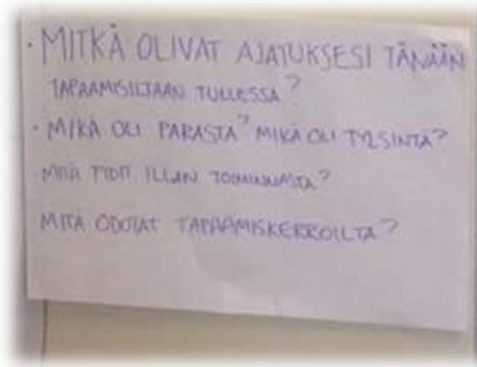 · MITKÄ OLIVAT AJATUKSESI TÄNÄÄN
TAPAAMISILTAAN TULLESSA?
· MIKÄ OLI PARASTA? MIKÄ OLI TYLSINTÄ?
· MITÄ ILLAN TOIMINNASTA?
MITÄ ODOTAT TAPAAMISKERROILTA?